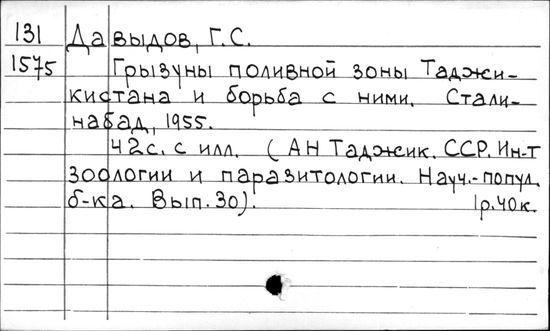 131 Давыдов, Г.С.
1575 Грызуны поливной зоны Таджи-
кистана и борьба с ними. Стали-
набад, 1955.
42с. с илл. (АН Таджик. ССР. Ин-т
зоологии и паразитологии. Науч.-попул.
б-ка. Вып. 30). 1р.40к.